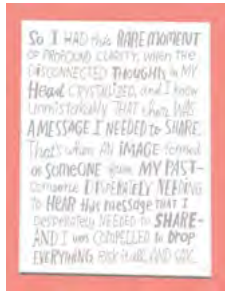 SO I HAD this RARE MOMENT
OF PROFOUND CLARITY, WHEN THE
DISCONNECTED THOUGHTS IN MY
Head CRYSTALIZED, and I knew
unmistakably THAT there WAS
A MESSAGE I NEEDED to SHARE.
That's when AN IMAGE formed
OF SOMEONE from MY PAST-
someone DESPERATELY NEEDING
to HEAR this message THAT I
Desperately NEEDED to SHARE-
AND I was COMPELLED to Drop
EVERYTHING, risk it all, AND SAY: